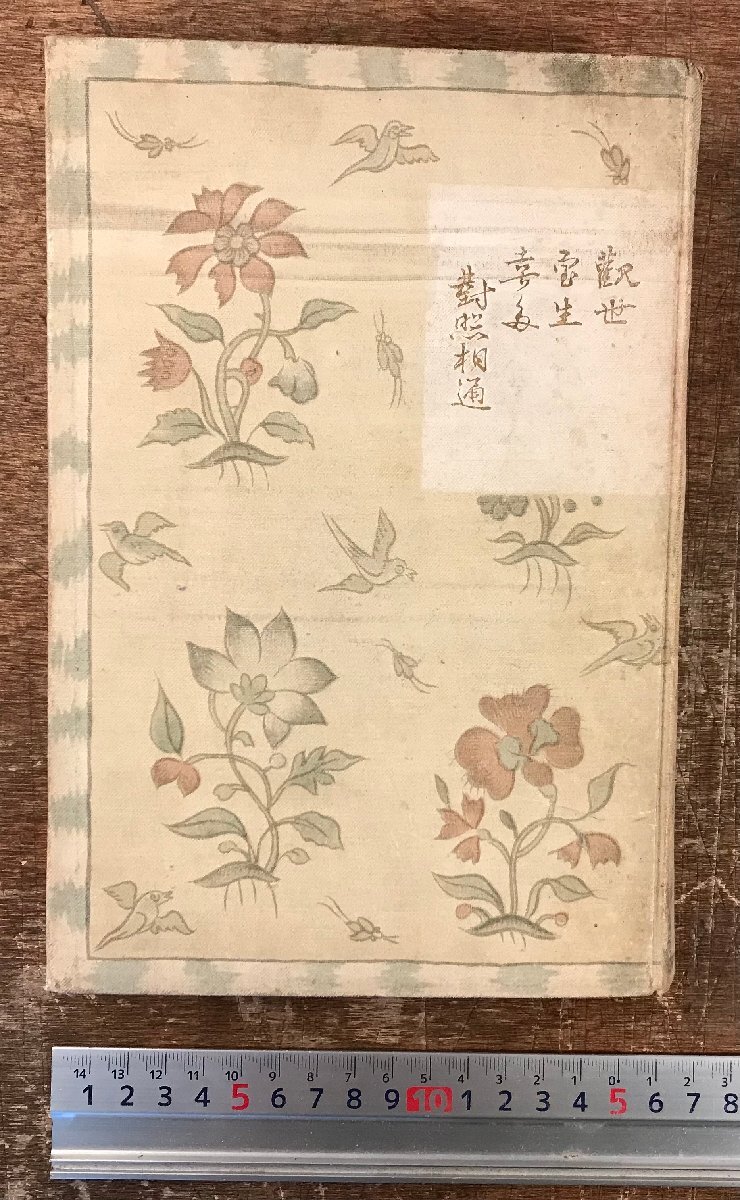 觀世
宝生
喜多
對照相通
14 13 12 11 10 9 8 7 6 5 4 3 2 1 0 1 2 3
1 2 3 4 5 6 7 8 9 10 1 2 3 4 5 6 7 8